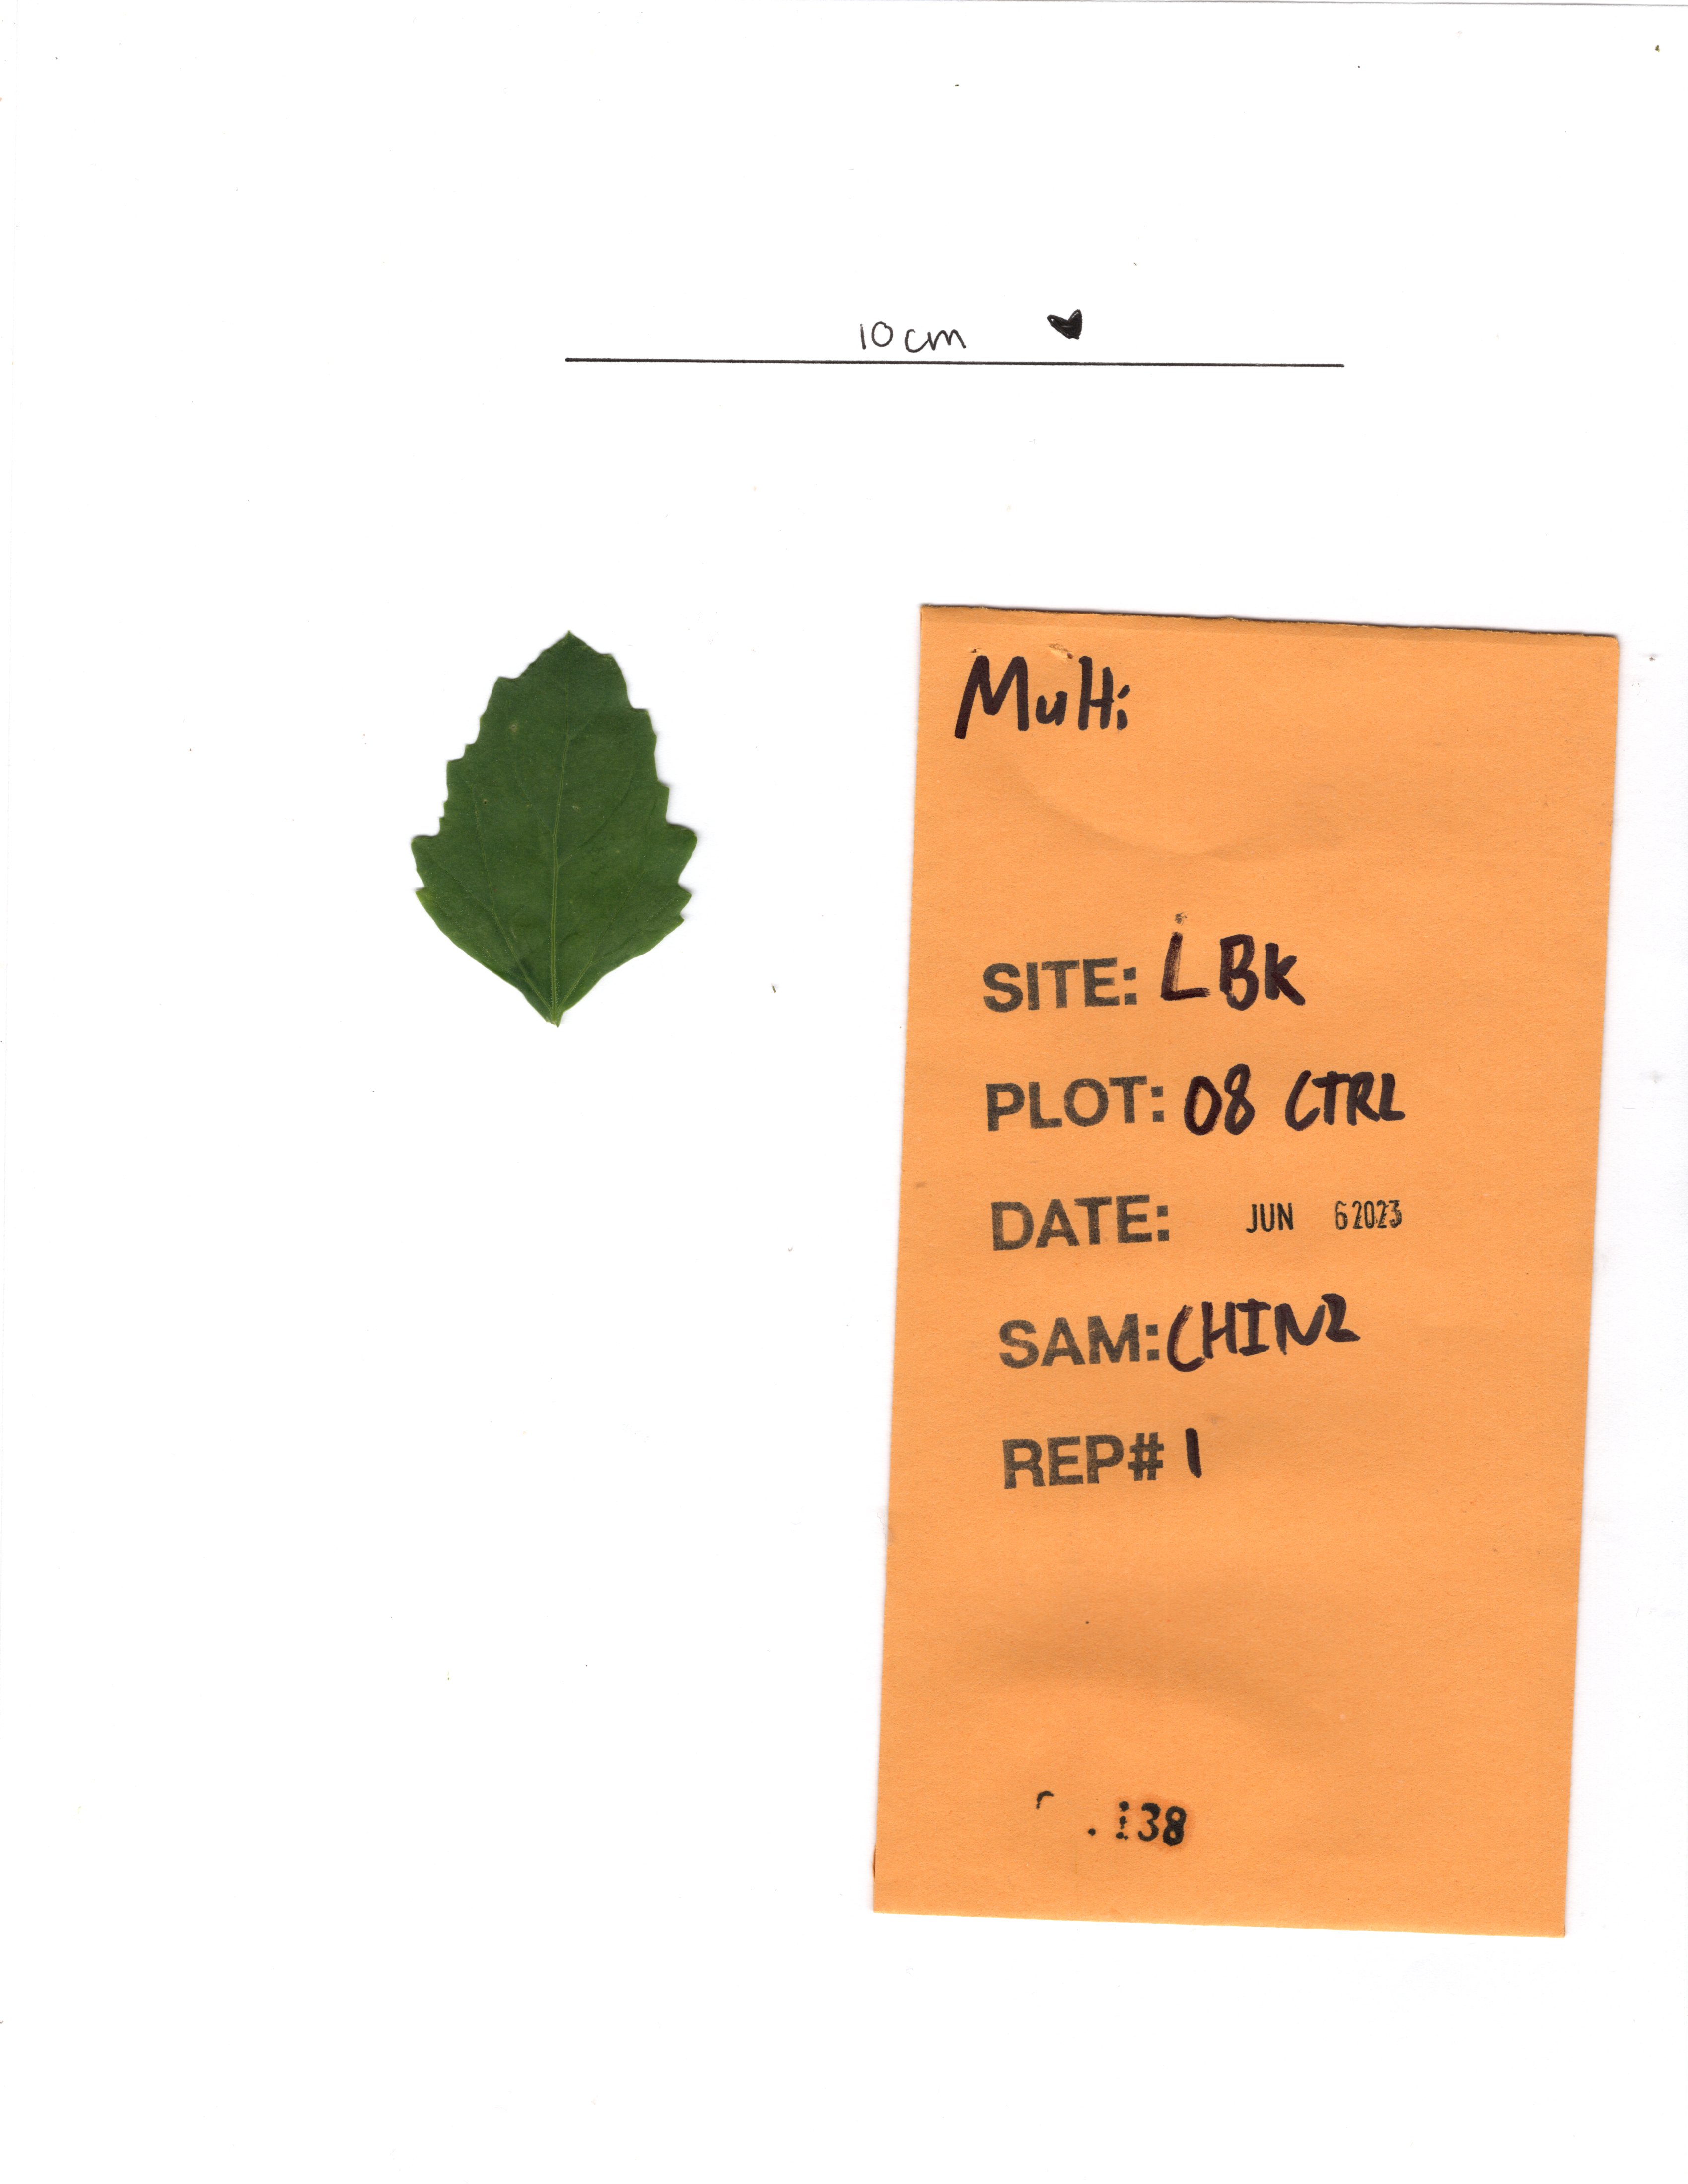 10cm
Multi
SITE: LBK
PLOT: 08 CTRL
DATE: JUN 6 2023
SAM: CHIN2
REP# 1
.138